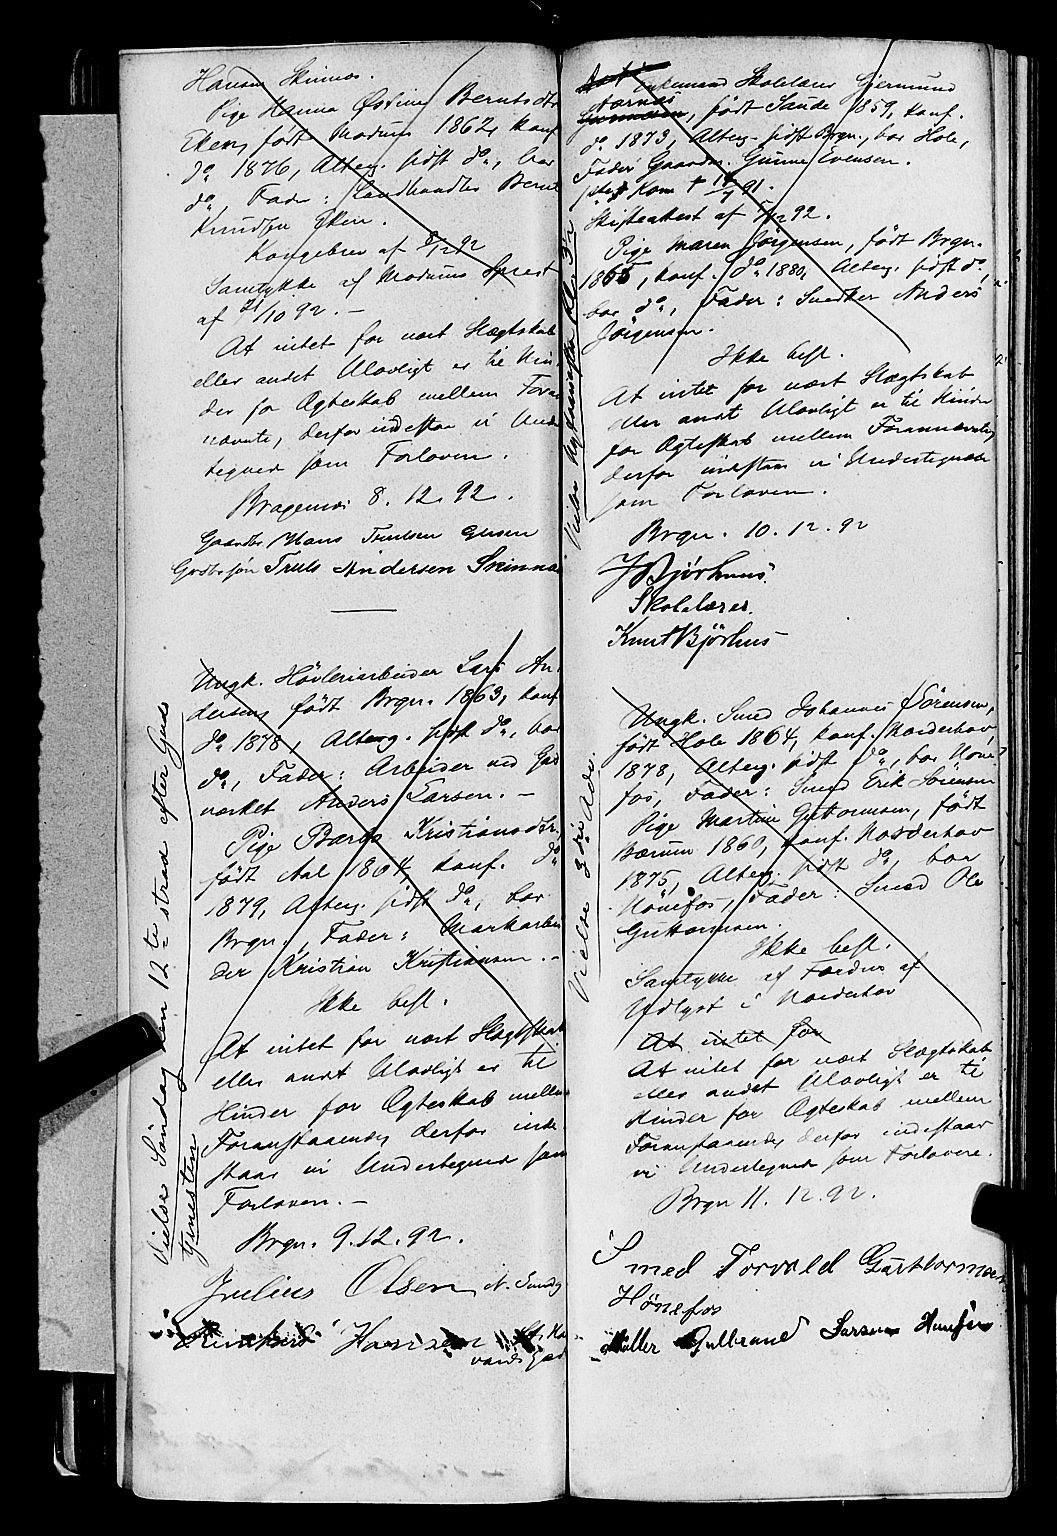 Hansen Skinnæs.
Pige Hanna Østine Berntsdtr
Eken, født Modum 1862, konf.
do. 1876, Alterg. sidst do., bor
do., Fader: Landhandler Bernt
Knudsen Eken.
Kongebrev af 8/12 92
Samtykke af Modums Prest
af 21/10 92. –
At intet for nært Slægtskab
eller andet Ulovligt er til Hin-
der for Ægteskab mellem Foran-
nævnte, derfor indestaa vi Under-
tegnede som Forlovere.
Bragernæs 8. 12. 92.
Gaardbr Hans Trulsen
Gaardbr søn Truls Andersen Skinnæs
Vielse Søndag den 12te strax efter Guds
Tjenesten
Ungk. Høvleriarbeider Lars An-
dersen, født Brgn. 1863, konf.
do. 1878, Alterg. sidst do., bor
do., Fader: Arbeider ved Gas
værket Anders Larsen. –
Pige Barbo Kristiansdtr,
født Aal 1864, konf. do.
1879, Alterg. sidst do., bor
Brgn., Fader: Markarbei
der Kristian Kristiansen. –
Ikke besl.
At intet for nært Slægtskab
eller andet Ulovligt er til
Hinder for Ægteskab mellem
Foranstaaende, derfor inde-
staar vi Undertegnede som
Forlovere. –
Brgn. 9. 12. 92.
Julius Olsen
Hansen
Enkemand Skolelærer Gjermund
født Sande 1859, konf.
do. 1873, Alterg. sidst Brgn., bor Hole,
Fader Gaardm. Gunne Evensen.
Kone † 91.
Skifteattest af 5/12 92.
Pige Maren Jørgensen, født Brgn.
1865, konf. do. 1880, Alterg. sidst do.,
bor do., Fader: Snedker Anders
Jørgensen.
Ikke besl.
At intet for nært Slægtskab
eller andet Ulovligt er til Hinder
for Ægteskab mellem Forannævnte,
derfor indestaa vi Undertegnede
som Forlovere.
Brgn. 10. 12. 92
J Bjørhuus
Skolelærer.
Knut Bjørhus
Vielse 3die Adv.
Ungk. Smed Johannes Sørensen,
født Hole 1864, konf. Norderhov
1878, Alterg. sidst do., bor Høne-
fos, Fader: Smed Erik Sørensen
Pige Martine Guttormsen, født
Bærum 1860, konf. Norderhov
1875, Alterg. sidst do., bor
Hønefos, Fader: Smed Ole
Guttormsen.
Ikke besl.
Samtykke af Fordums af
Udlyst i Norderhov
At intet for
At intet for nært Slægtskab
eller andet Ulovligt er til
Hinder for Ægteskab mellem
Foranstaaende, derfor indestaar
vi Undertegnede som Forlovere.
Brgn 11. 12. 92.
Smed Torvald Guttormsen
Hønefos
Møller Gulbrand Larsen Hønefos